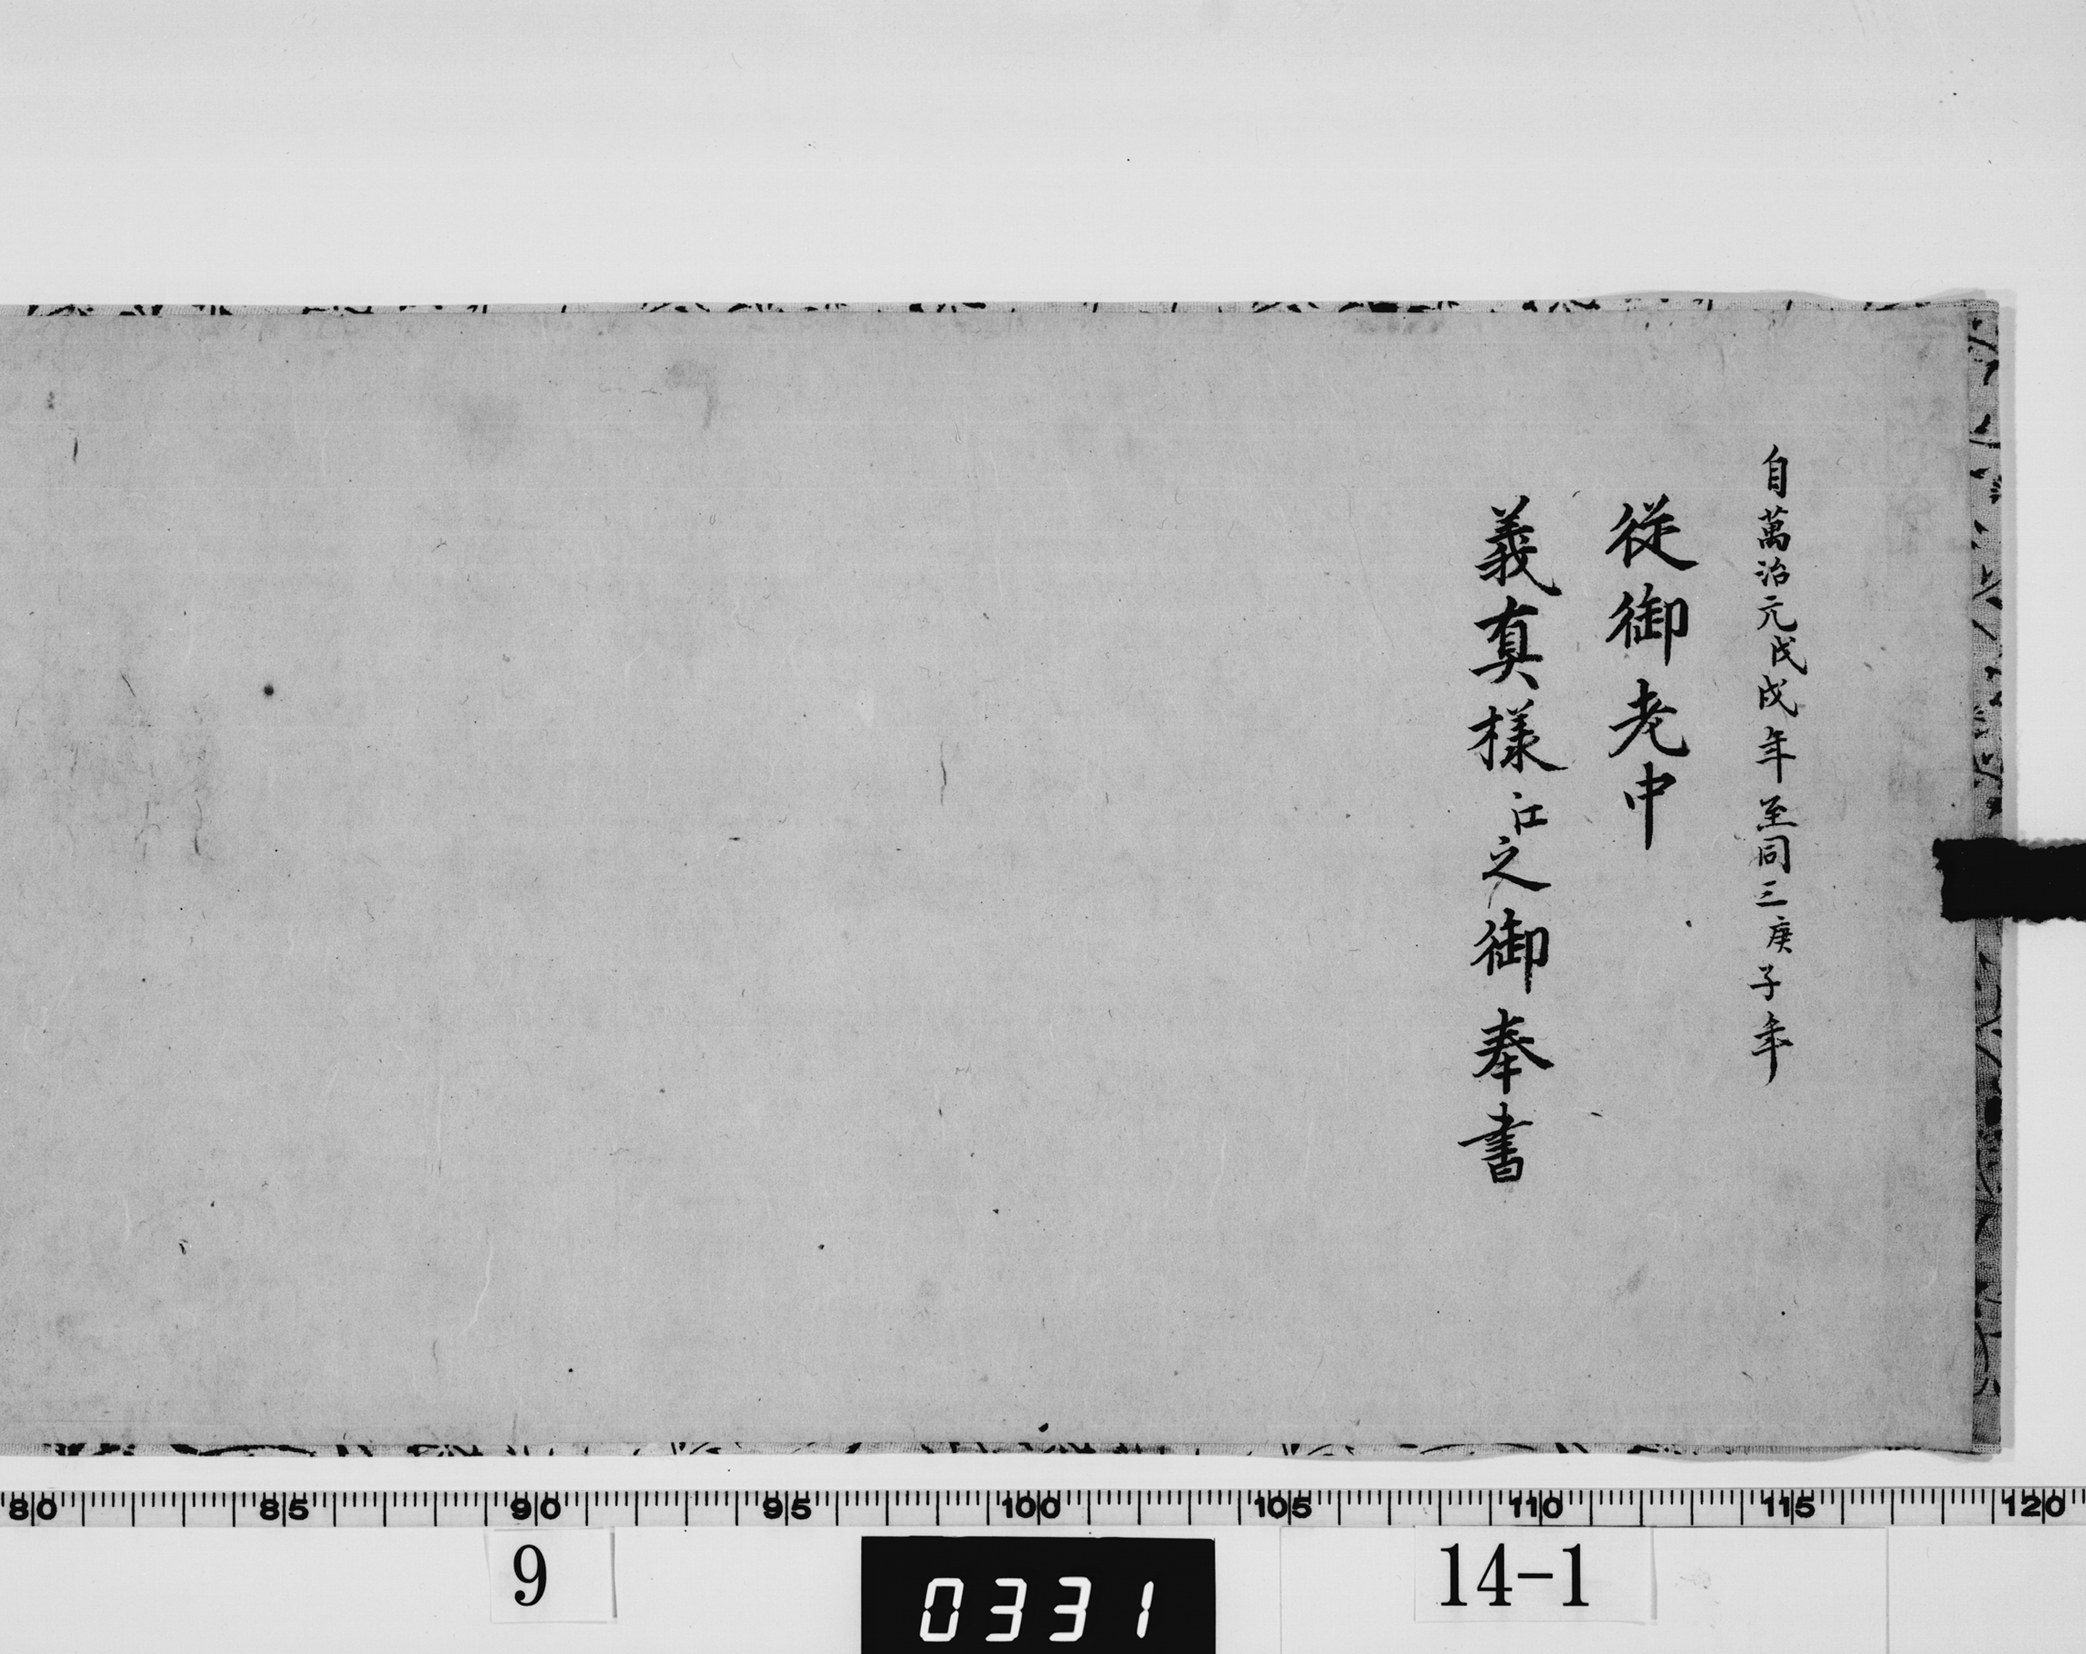 自萬治元戊戌年至同三庚子年
従御老中
義真様江之御奉書
80 85 90 95 100 105 110 115 120
9
0331
14-1